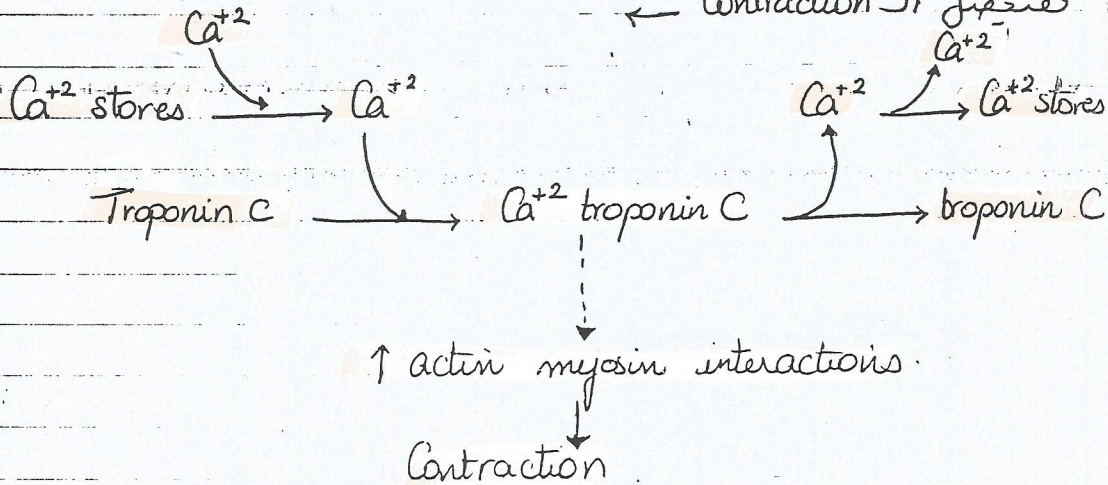 ← Contraction
Ca+2
Ca+2
Ca+2 stores → Ca+2
Ca+2 → Ca+2 stores
Troponin C → Ca+2 troponin C → troponin C
↑ actin myosin interactions.
Contraction